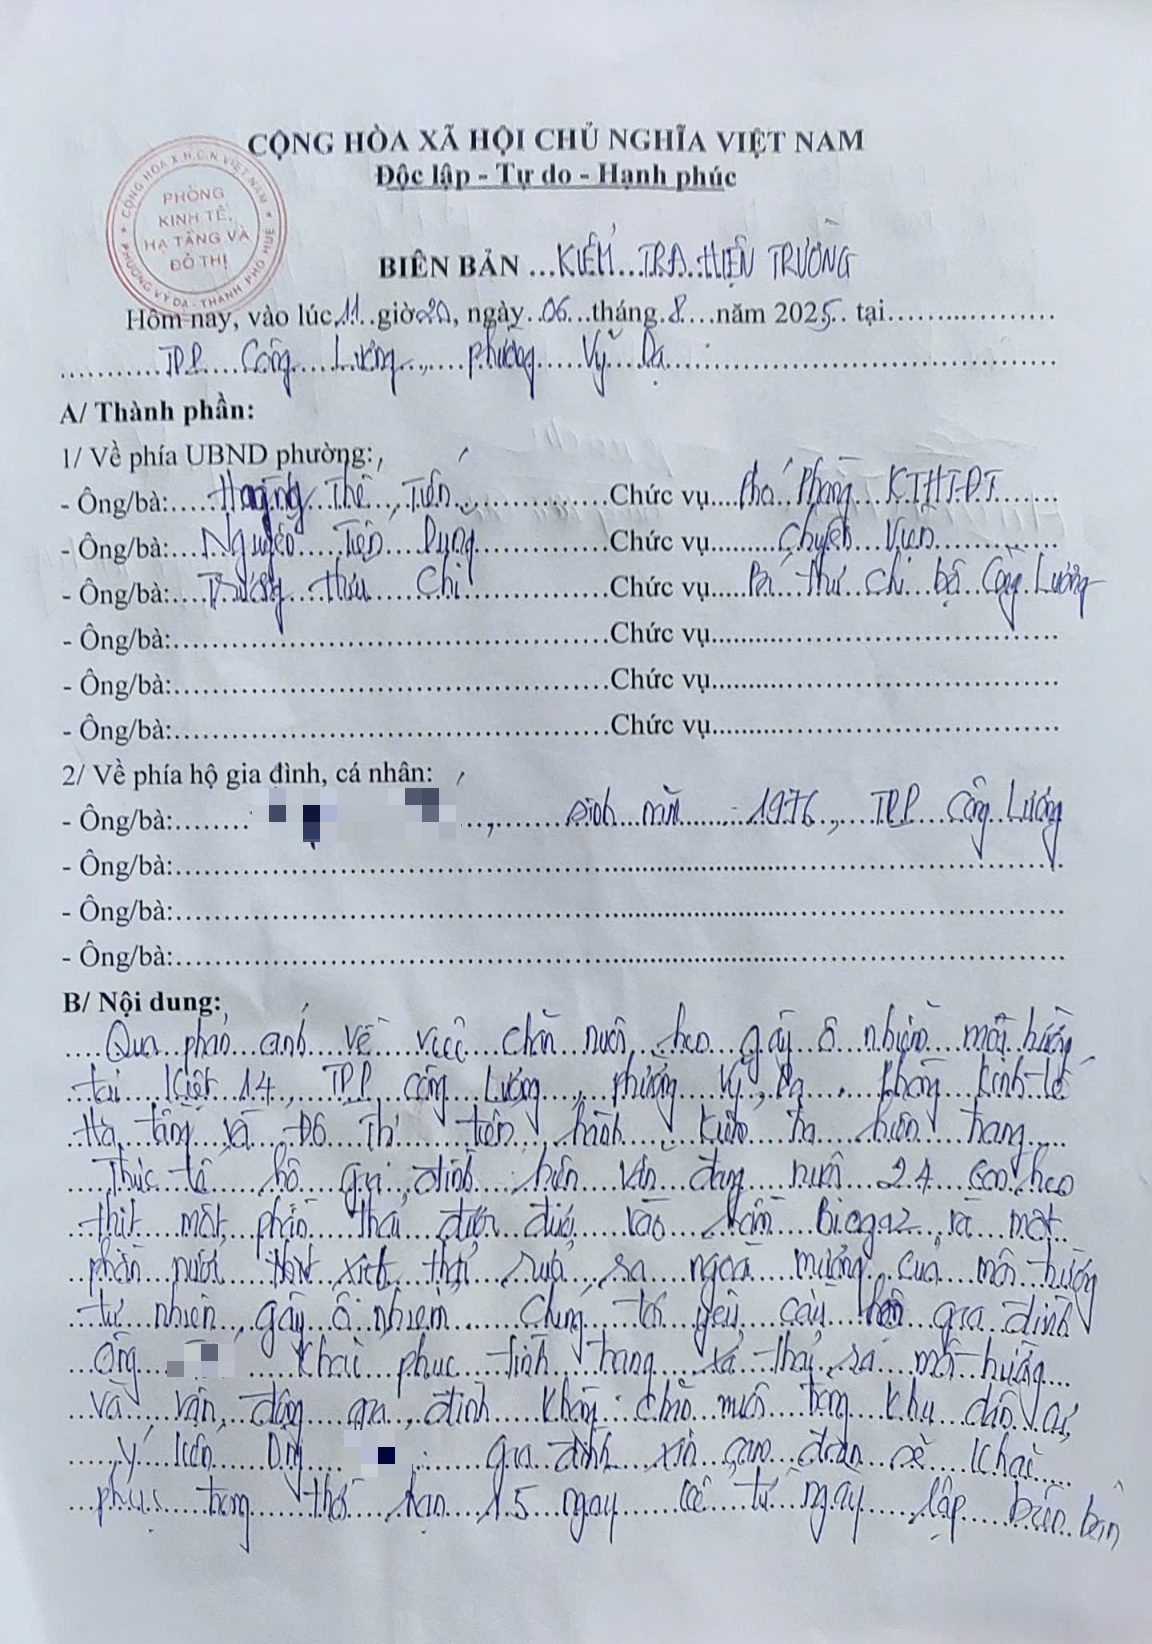 CỘNG HÒA XÃ HỘI CHỦ NGHĨA VIỆT NAM
Độc lập - Tự do - Hạnh phúc
CỘNG HÒA X.H.C.N VIỆT NAM
PHÒNG
KINH TẾ,
HẠ TẦNG VÀ
ĐÔ THỊ
PHƯỜNG VỸ DẠ - THÀNH PHỐ HUẾ
BIÊN BẢN ...KIỂM...TRA...HIỆN TRƯỜNG
Hôm nay, vào lúc 11 giờ 20, ngày 06 tháng 8 năm 2025 tại
TDP Công Lương, phường Vỹ Dạ
A/ Thành phần:
1/ Về phía UBND phường:
- Ông/bà: Hoàng Thế Tiến Chức vụ Phó Phòng KTHTĐT
- Ông/bà: Nguyễn Tiến Dụng Chức vụ Chuyên Viên
- Ông/bà: Trương Thị Chi Chức vụ Bí thư chi bộ Công Lương
- Ông/bà: Chức vụ
- Ông/bà: Chức vụ
- Ông/bà: Chức vụ
2/ Về phía hộ gia đình, cá nhân:
- Ông/bà: , sinh năm 1976, TDP Công Lương
- Ông/bà:
- Ông/bà:
- Ông/bà:
B/ Nội dung:
Qua phản ánh về việc chăn nuôi heo gây ô nhiễm môi trường
tại Kiệt 14, TDP Công Lương, phường Vỹ Dạ. Phòng Kinh tế
Hạ tầng và Đô Thị tiến hành kiểm tra hiện trạng
Thực tế hộ gia đình hiện vẫn đang nuôi 24 con heo
thịt một phần thải được đưa vào hầm Biogaz và một
phần nước thải xịt rửa ra ngoài mương của môi trường
tự nhiên, gây ô nhiễm. Chúng tôi yêu cầu gia đình
Ông khắc phục tình trạng xả thải ra môi trường
và vận động gia đình không chăn nuôi trong khu dân cư,
Ý kiến Ông : gia đình xin cam đoan sẽ khắc
phục trong thời hạn 15 ngày kể từ ngày lập biên bản